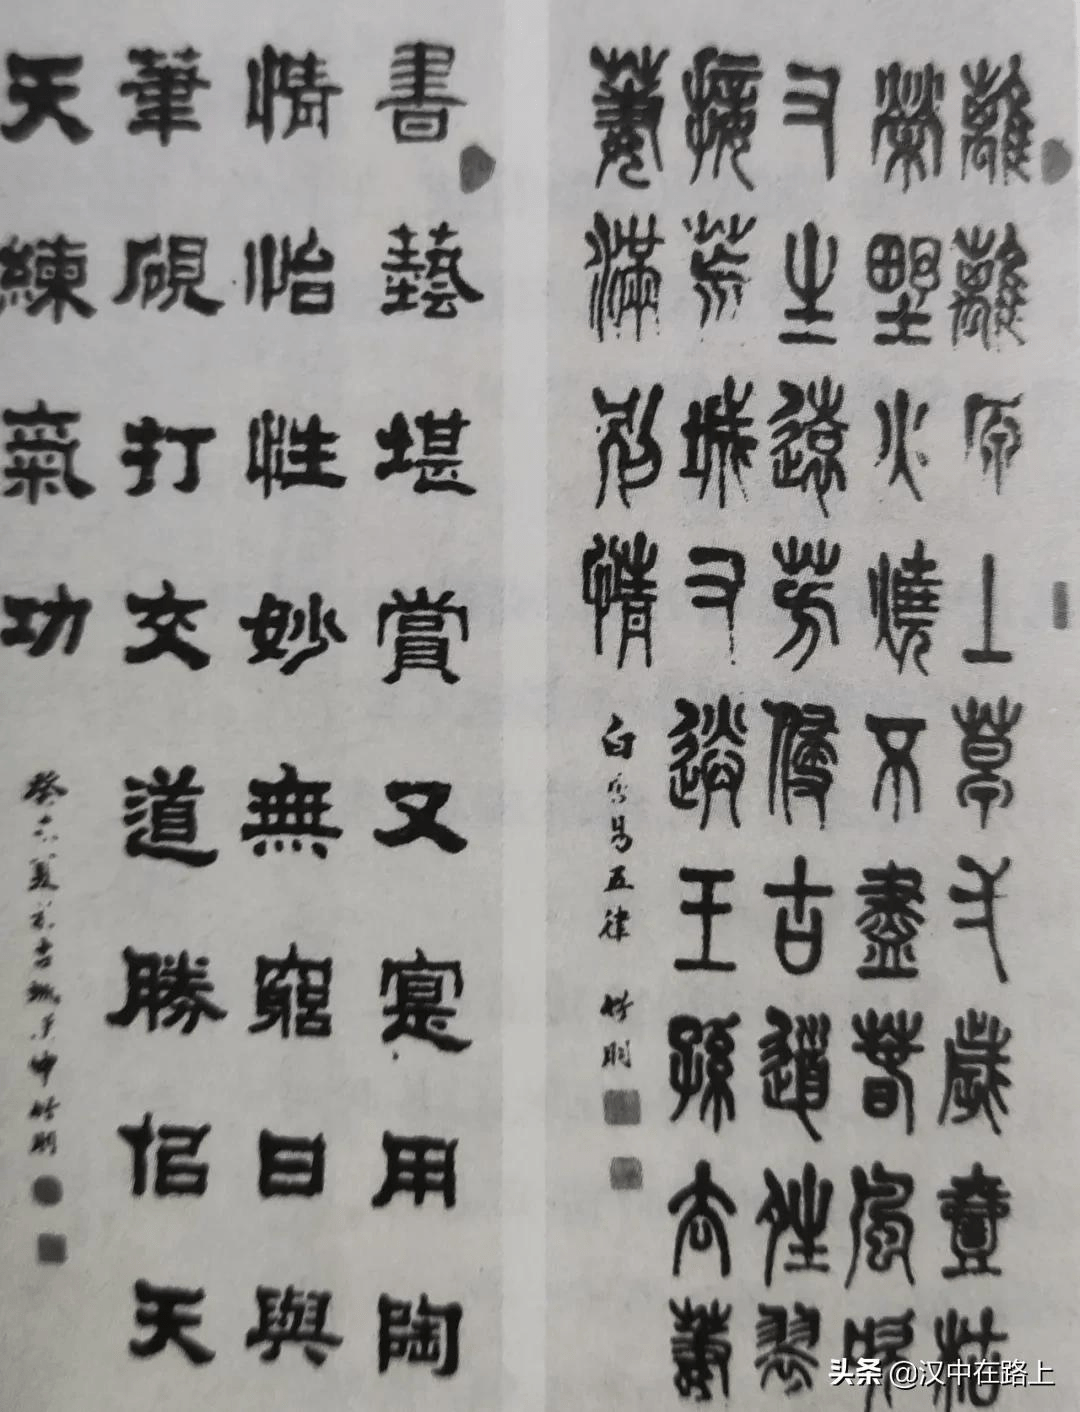 離離原上草歲壹枯
榮野火燒不盡春風吹
又生遠芳侵古道晴翠
接荒城又送王孫去萋
萋滿別情
白居易五律 竹明
書藝堪賞又寔用陶
情怡性妙無窮日與
筆硯打交道勝佀天
天練氣功
癸未夏於古城漢中竹明
头条 @汉中在路上